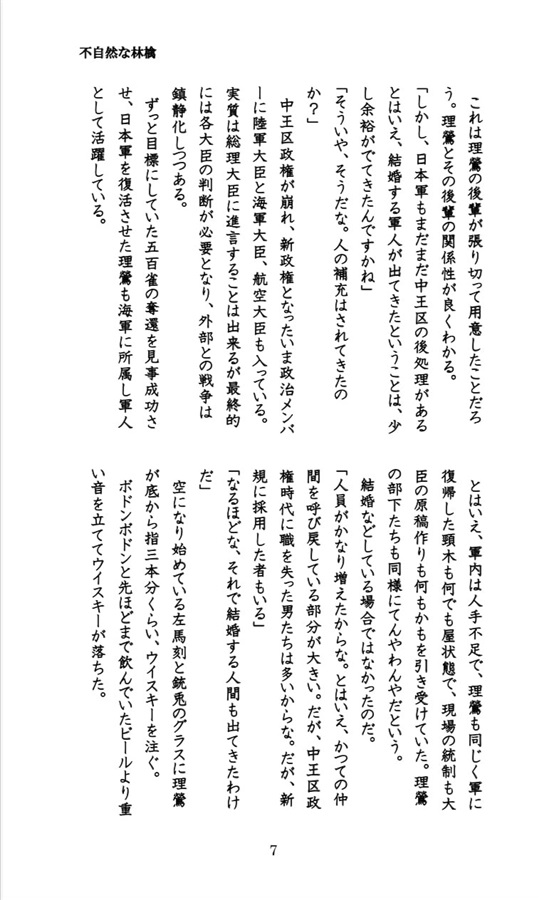 不自然な林檎
　これは理鶯の後輩が張り切って用意したことだろ
う。理鶯とその後輩の関係性が良くわかる。
「しかし、日本軍もまだまだ中王区の後処理がある
とはいえ、結婚する軍人が出てきたということは、少
し余裕がでてきたんですかね」
「そういや、そうだな。人の補充はされてきたの
か？」
　中王区政権が崩れ、新政権となったいま政治メンバ
ーに陸軍大臣と海軍大臣、航空大臣も入っている。
実質は総理大臣に進言することは出来るが最終的
には各大臣の判断が必要となり、外部との戦争は
鎮静化しつつある。
　ずっと目標にしていた五百雀の奪還を見事成功さ
せ、日本軍を復活させた理鶯も海軍に所属し軍人
として活躍している。
　とはいえ、軍内は人手不足で、理鶯も同じく軍に
復帰した頸木も何でも屋状態で、現場の統制も大
臣の原稿作りも何もかもを引き受けていた。理鶯
の部下たちも同様にてんやわんやだという。
　結婚などしている場合ではなかったのだ。
「人員がかなり増えたからな。とはいえ、かつての仲
間を呼び戻している部分が大きい。だが、中王区政
権時代に職を失った男たちは多いからな。だが、新
規に採用した者もいる」
「なるほどな、それで結婚する人間も出てきたわけ
だ」
　空になり始めている左馬刻と銃兎のグラスに理鶯
が底から指三本分くらい、ウイスキーを注ぐ。
　ボドンボドンと先ほどまで飲んでいたビールより重
い音を立ててウイスキーが落ちた。
7